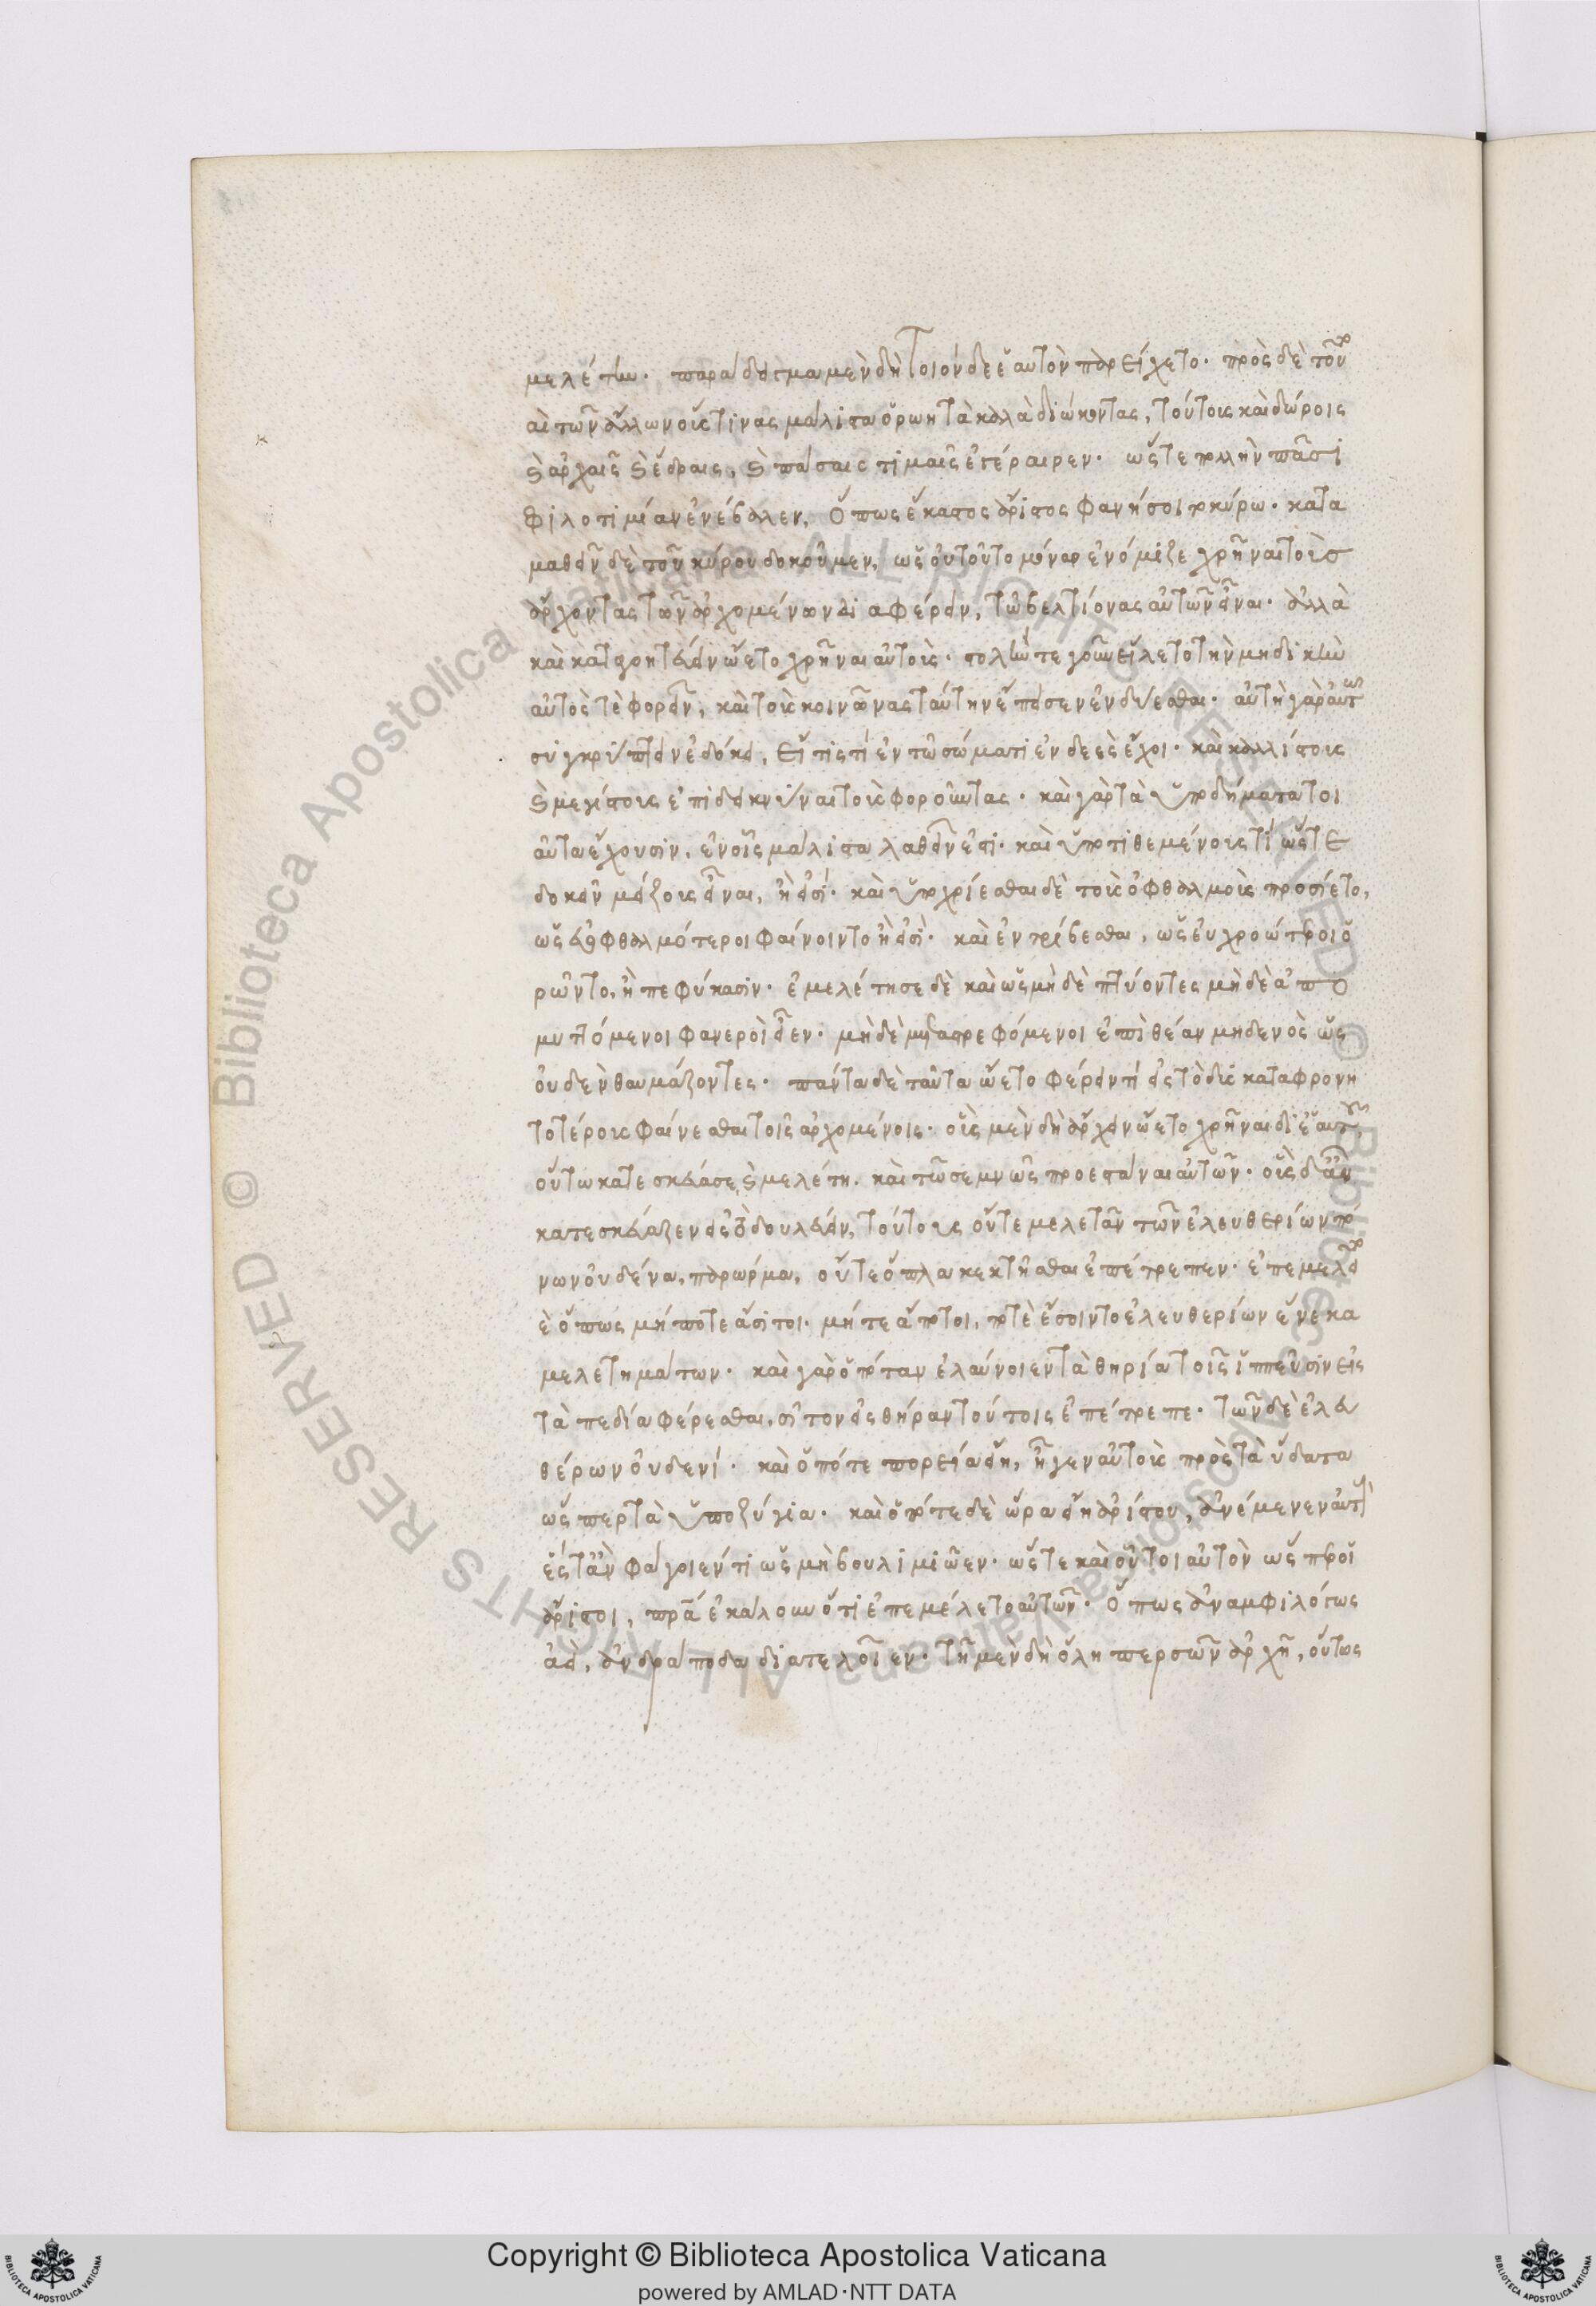 μελέτην. παράδειγμα μὲν δὴ τοιόνδε ἑαυτὸν παρείχετο. πρὸς δὲ τούτῳ
αὖ τῶν ἄλλων οὕς τινας μάλιστα ὁρώη τὰ καλὰ διώκοντας, τούτοις καὶ δώροις
καὶ ἀρχαῖς καὶ ἕδραις, καὶ πάσαις τιμαῖς ἐγέραιρεν. ὥστε πολλὴν πᾶσι
φιλοτιμίαν ἐνέβαλεν, ὅπως ἕκαστος ἄριστος φανήσοιτο κύρω. κατα
μαθεῖν δὲ τοῦ κύρου δοκοῦμεν, ὡς οὐ τοῦτο μόνον ἐνόμιζε χρῆναι τοὺς
ἄρχοντας τῶν ἀρχομένων διαφέρειν, τῷ βελτίονας αὐτῶν εἶναι. ἀλλὰ
καὶ καταγοητεύειν ᾤετο χρῆναι αὐτούς. στολήν τε γοῦν εἵλετο τὴν μηδικὴν
αὐτός τε φορεῖν, καὶ τοὺς κοινῶνας ταύτην ἔπεισεν ἐνδύεσθαι. αὐτὴ γὰρ αὐτῷ
συγκρύπτειν ἐδόκει, εἴ τίς τι ἐν τῷ σώματι ἐνδεὲς ἔχοι. καὶ καλλίστους
καὶ μεγίστους ἐπιδεικνύναι τοὺς φοροῦντας. καὶ γὰρ τὰ ὑποδήματα τοι
αῦτα ἔχουσιν, ἐν οἷς μάλιστα λαθεῖν ἐστι. καὶ ὑποτιθεμένους τί ὥστε
δοκεῖν μείζους εἶναι, ἢ εἰσί. καὶ ὑποχρίεσθαι δὲ τοὺς ὀφθαλμοὺς προσίετο,
ὡς εὐοφθαλμότεροι φαίνοιντο ἢ εἰσί. καὶ ἐντρίβεσθαι, ὡς εὐχροώτεροι ὁ
ρῶντο, ἢ πεφύκασιν. ἐμελέτησε δὲ καὶ ὡς μὴ δὲ πτύοντες μὴ δὲ ἀπο
μυττόμενοι φανεροὶ εἶεν. μὴ δὲ μεταστρεφόμενοι ἐπὶ θέαν μηδενὸς ὡς
οὐδὲν θαυμάζοντες. πάντα δὲ ταῦτα ᾤετο φέρειν τί εἰς τὸ δυσκαταφρονη
τοτέροις φαίνεσθαι τοῖς ἀρχομένοις. οὓς μὲν δὴ ἄρχειν ᾤετο χρῆναι δι' ἑαυτοῦ,
οὕτω κατεσκεύασε καὶ μελέτῃ. καὶ τῷ σεμνῶς προεστάναι αὐτῶν. οὓς δ' ἂν
κατεσκεύαζεν εἰς τὸ δουλεύειν, τούτους οὔτε μελετᾶν τῶν ἐλευθερίων πό
νων οὐδένα, παρώρμα, οὔτε ὅπλα κεκτῆσθαι ἐπέτρεπεν. ἐπεμελεῖτο
δὲ ὅπως μήποτε ἄσιτοι. μήτε ἄποτοι, ποτὲ ἔσοιντο ἐλευθερίων ἕνεκα
μελετημάτων. καὶ γὰρ ὁπόταν ἐλαύνοιεν τὰ θηρία τοῖς ἱππεῦσιν εἰς
τὰ πεδία φέρεσθαι, σῖτον εἰς θήραν τούτοις ἐπέτρεπε. τῶν δὲ ἐλευ
θέρων οὐδενί. καὶ ὁπότε πορεία εἴη, ἦγεν αὐτοὺς πρὸς τὰ ὕδατα
ὥσπερ τὰ ὑποζύγια. καὶ ὁπότε δὲ ὥρα εἴη ἀρίστου, ἀνέμενεν αὐτοὺς
ἔς τ' ἂν φάγοιέν τι ὡς μὴ βουλιμιῶεν. ὥστε καὶ οὗτοι αὐτὸν ὥσπερ οἱ
ἄριστοι, πρᾶ ἐκάλουν ὅτι ἐπεμέλετο αὐτῶν. ὅπως ἀναμφιλόγως
ἀεὶ, ἀνδράποδα διατελοῖεν. τῇ μὲν δὴ ὅλῃ περσῶν ἀρχῇ, οὕτως